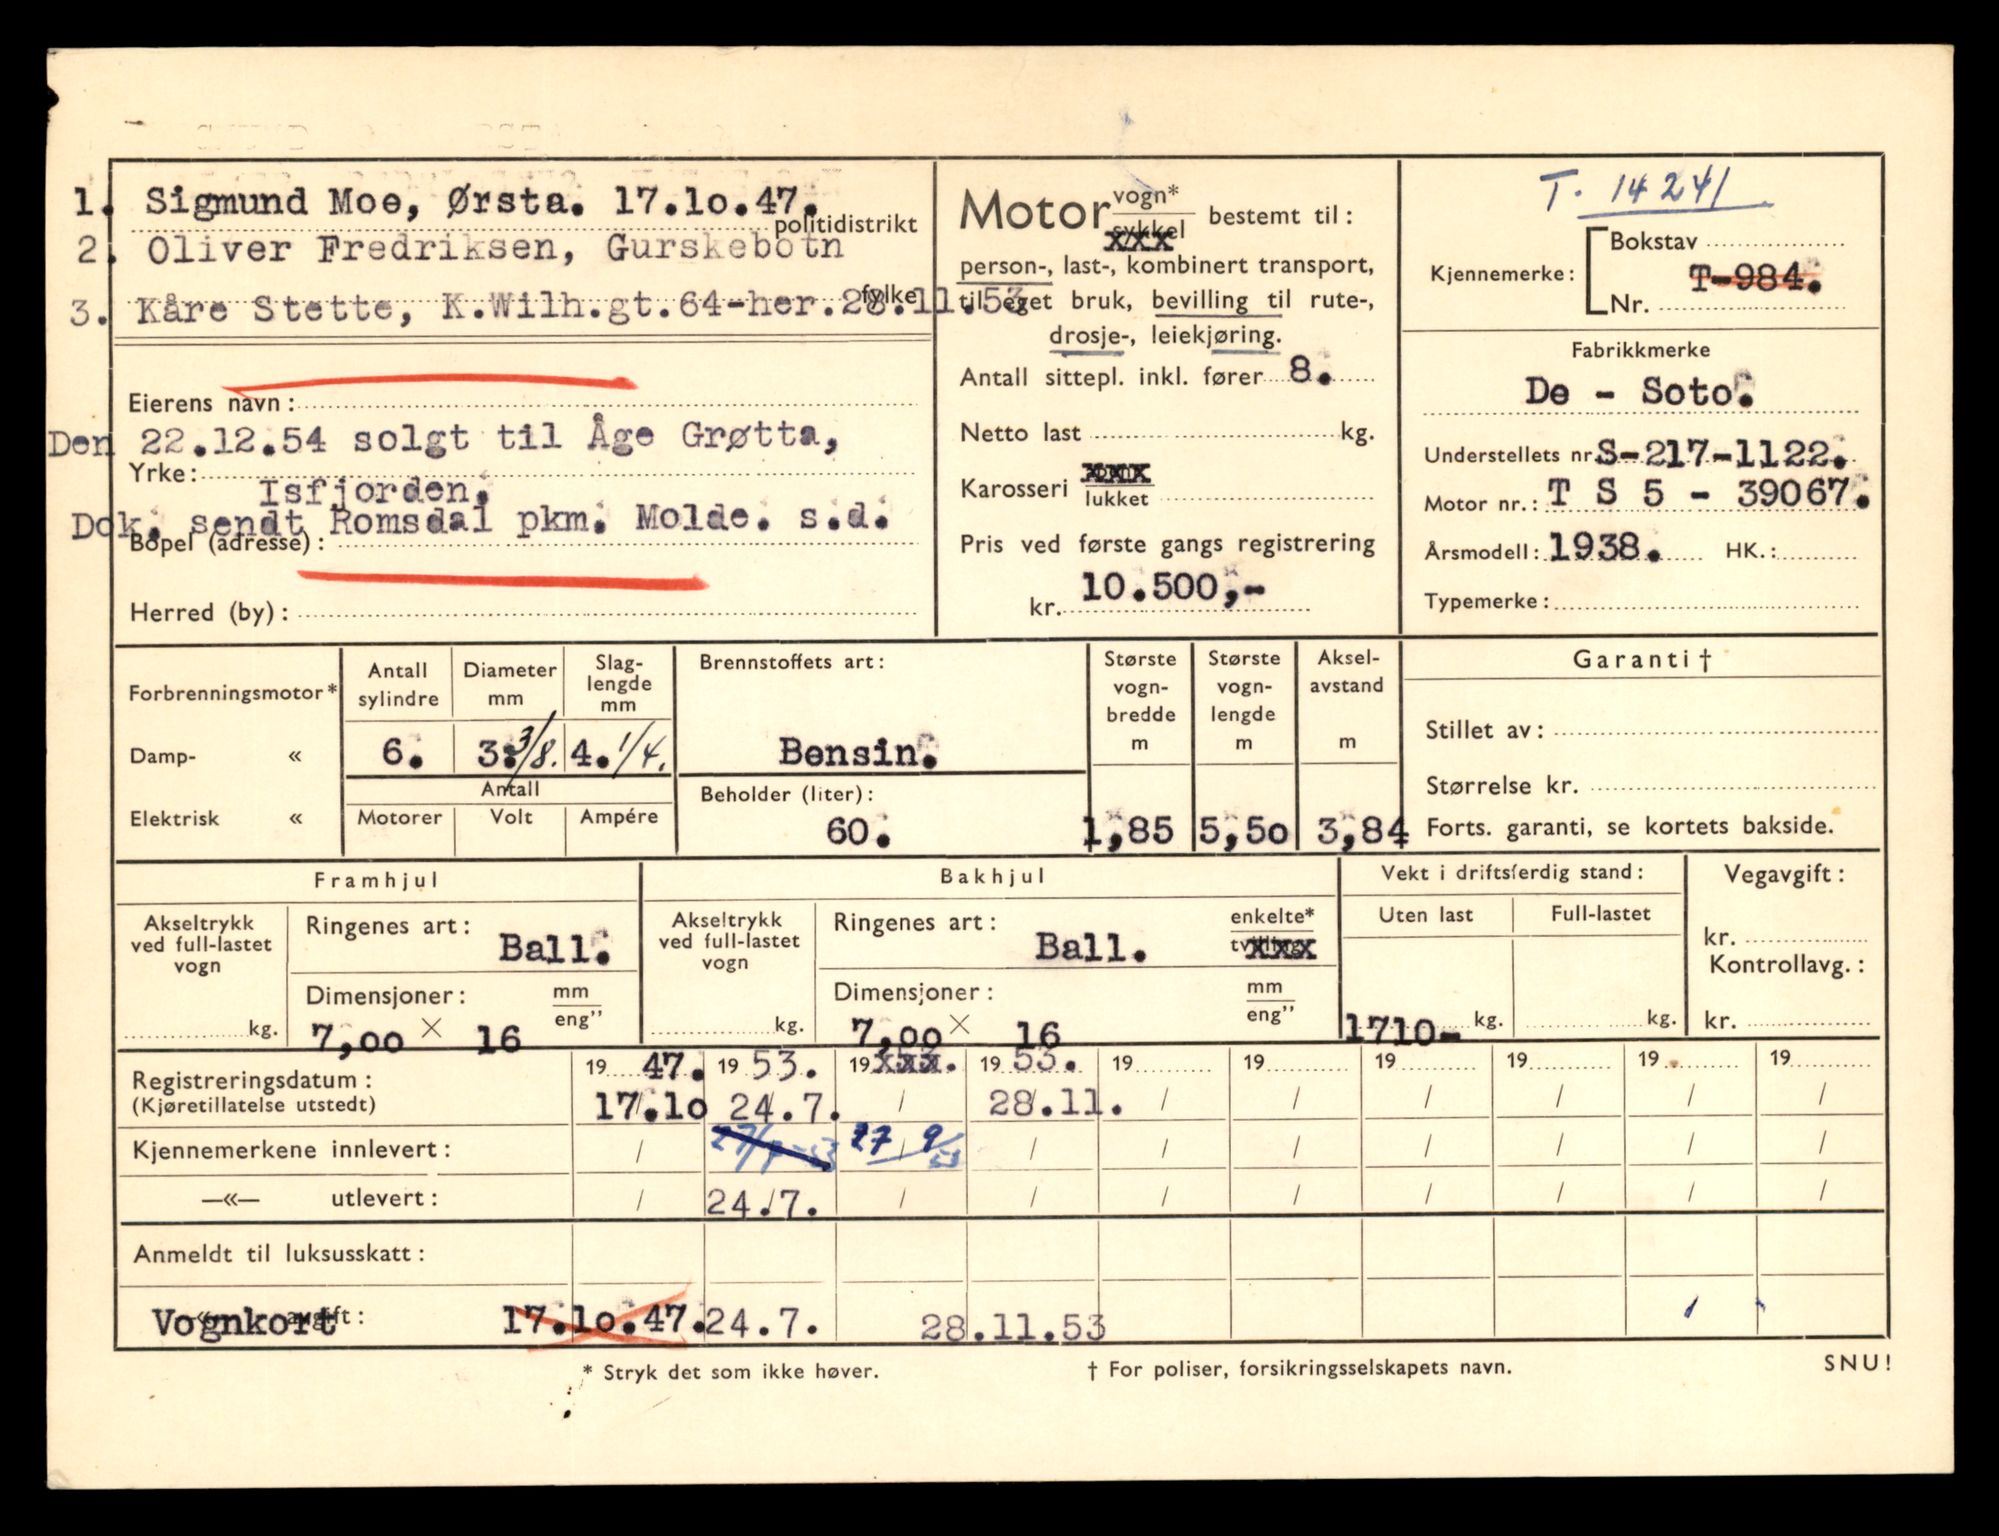 1. Sigmund Moe, Ørsta. 17.10.47.
politidistrikt
2. Oliver Fredriksen, Gurskebotn
fylke
3. Kåre Stette, K.Wilh.gt.64-her.28.11.53
Eierens navn:
Den 22.12.54 solgt til Åge Grøtta,
Yrke:
Isfjorden.
Dok. sendt Romsdal pkm. Molde. s.d.
Bopel (adresse):
Herred (by):
Motor vogn*
sykkel xxx bestemt til:
person-, last-, kombinert transport,
til eget bruk, bevilling til rute-,
drosje-, leiekjøring.
Antall sittepl. inkl. fører 8.
Netto last kg.
Karosseri xxxx
lukket
Pris ved første gangs registrering
kr. 10.500,-
T. 14241
Kjennemerke: Bokstav
T-984.
Nr.
Fabrikkmerke
De - Soto.
Understellets nr. S-217-1122.
Motor nr.: T S 5 - 39067.
Årsmodell: 1938. HK.:
Typemerke:
Forbrenningsmotor*
Damp- «
Elektrisk «
Antall sylindre
6.
Diameter mm
3.3/8.
Slag-
lengde
mm
4.1/4.
Antall
Motorer Volt Ampére
Brennstoffets art:
Bensin.
Beholder (liter):
60.
Største
vogn-
bredde
m
1,85
Største
vogn-
lengde
m
5,50
Aksel-
avstand
m
3,84
Garanti †
Stillet av:
Størrelse kr.
Forts. garanti, se kortets bakside.
Framhjul
Akseltrykk
ved full-lastet
vogn
kg.
Ringenes art:
Ball.
Dimensjoner: mm
eng”
7,00 × 16
Bakhjul
Akseltrykk
ved full-lastet
vogn
kg.
Ringenes art: enkelte*
Ball. tvilling xxx
Dimensjoner: mm
eng”
7,00 × 16
Vekt i driftsferdig stand:
Uten last Full-lastet
1710- kg. kg.
Vegavgift:
kr.
Kontrollavg.:
kr.
19 47. 19 53. 19 xxx. 19 53. 19 19 19 19 19 19
Registreringsdatum:
(Kjøretillatelse utstedt) 17.10 24.7. / 28.11. / / / / / /
Kjennemerkene innlevert: / 27/7-53 27/9 53 / / / / / / /
—«— utlevert: / 24.7. / / / / / / / /
Anmeldt til luksusskatt:
Vognkort « avgift: 17.10.47. 24.7. 28.11.53
* Stryk det som ikke høver.
† For poliser, forsikringsselskapets navn.
SNU!